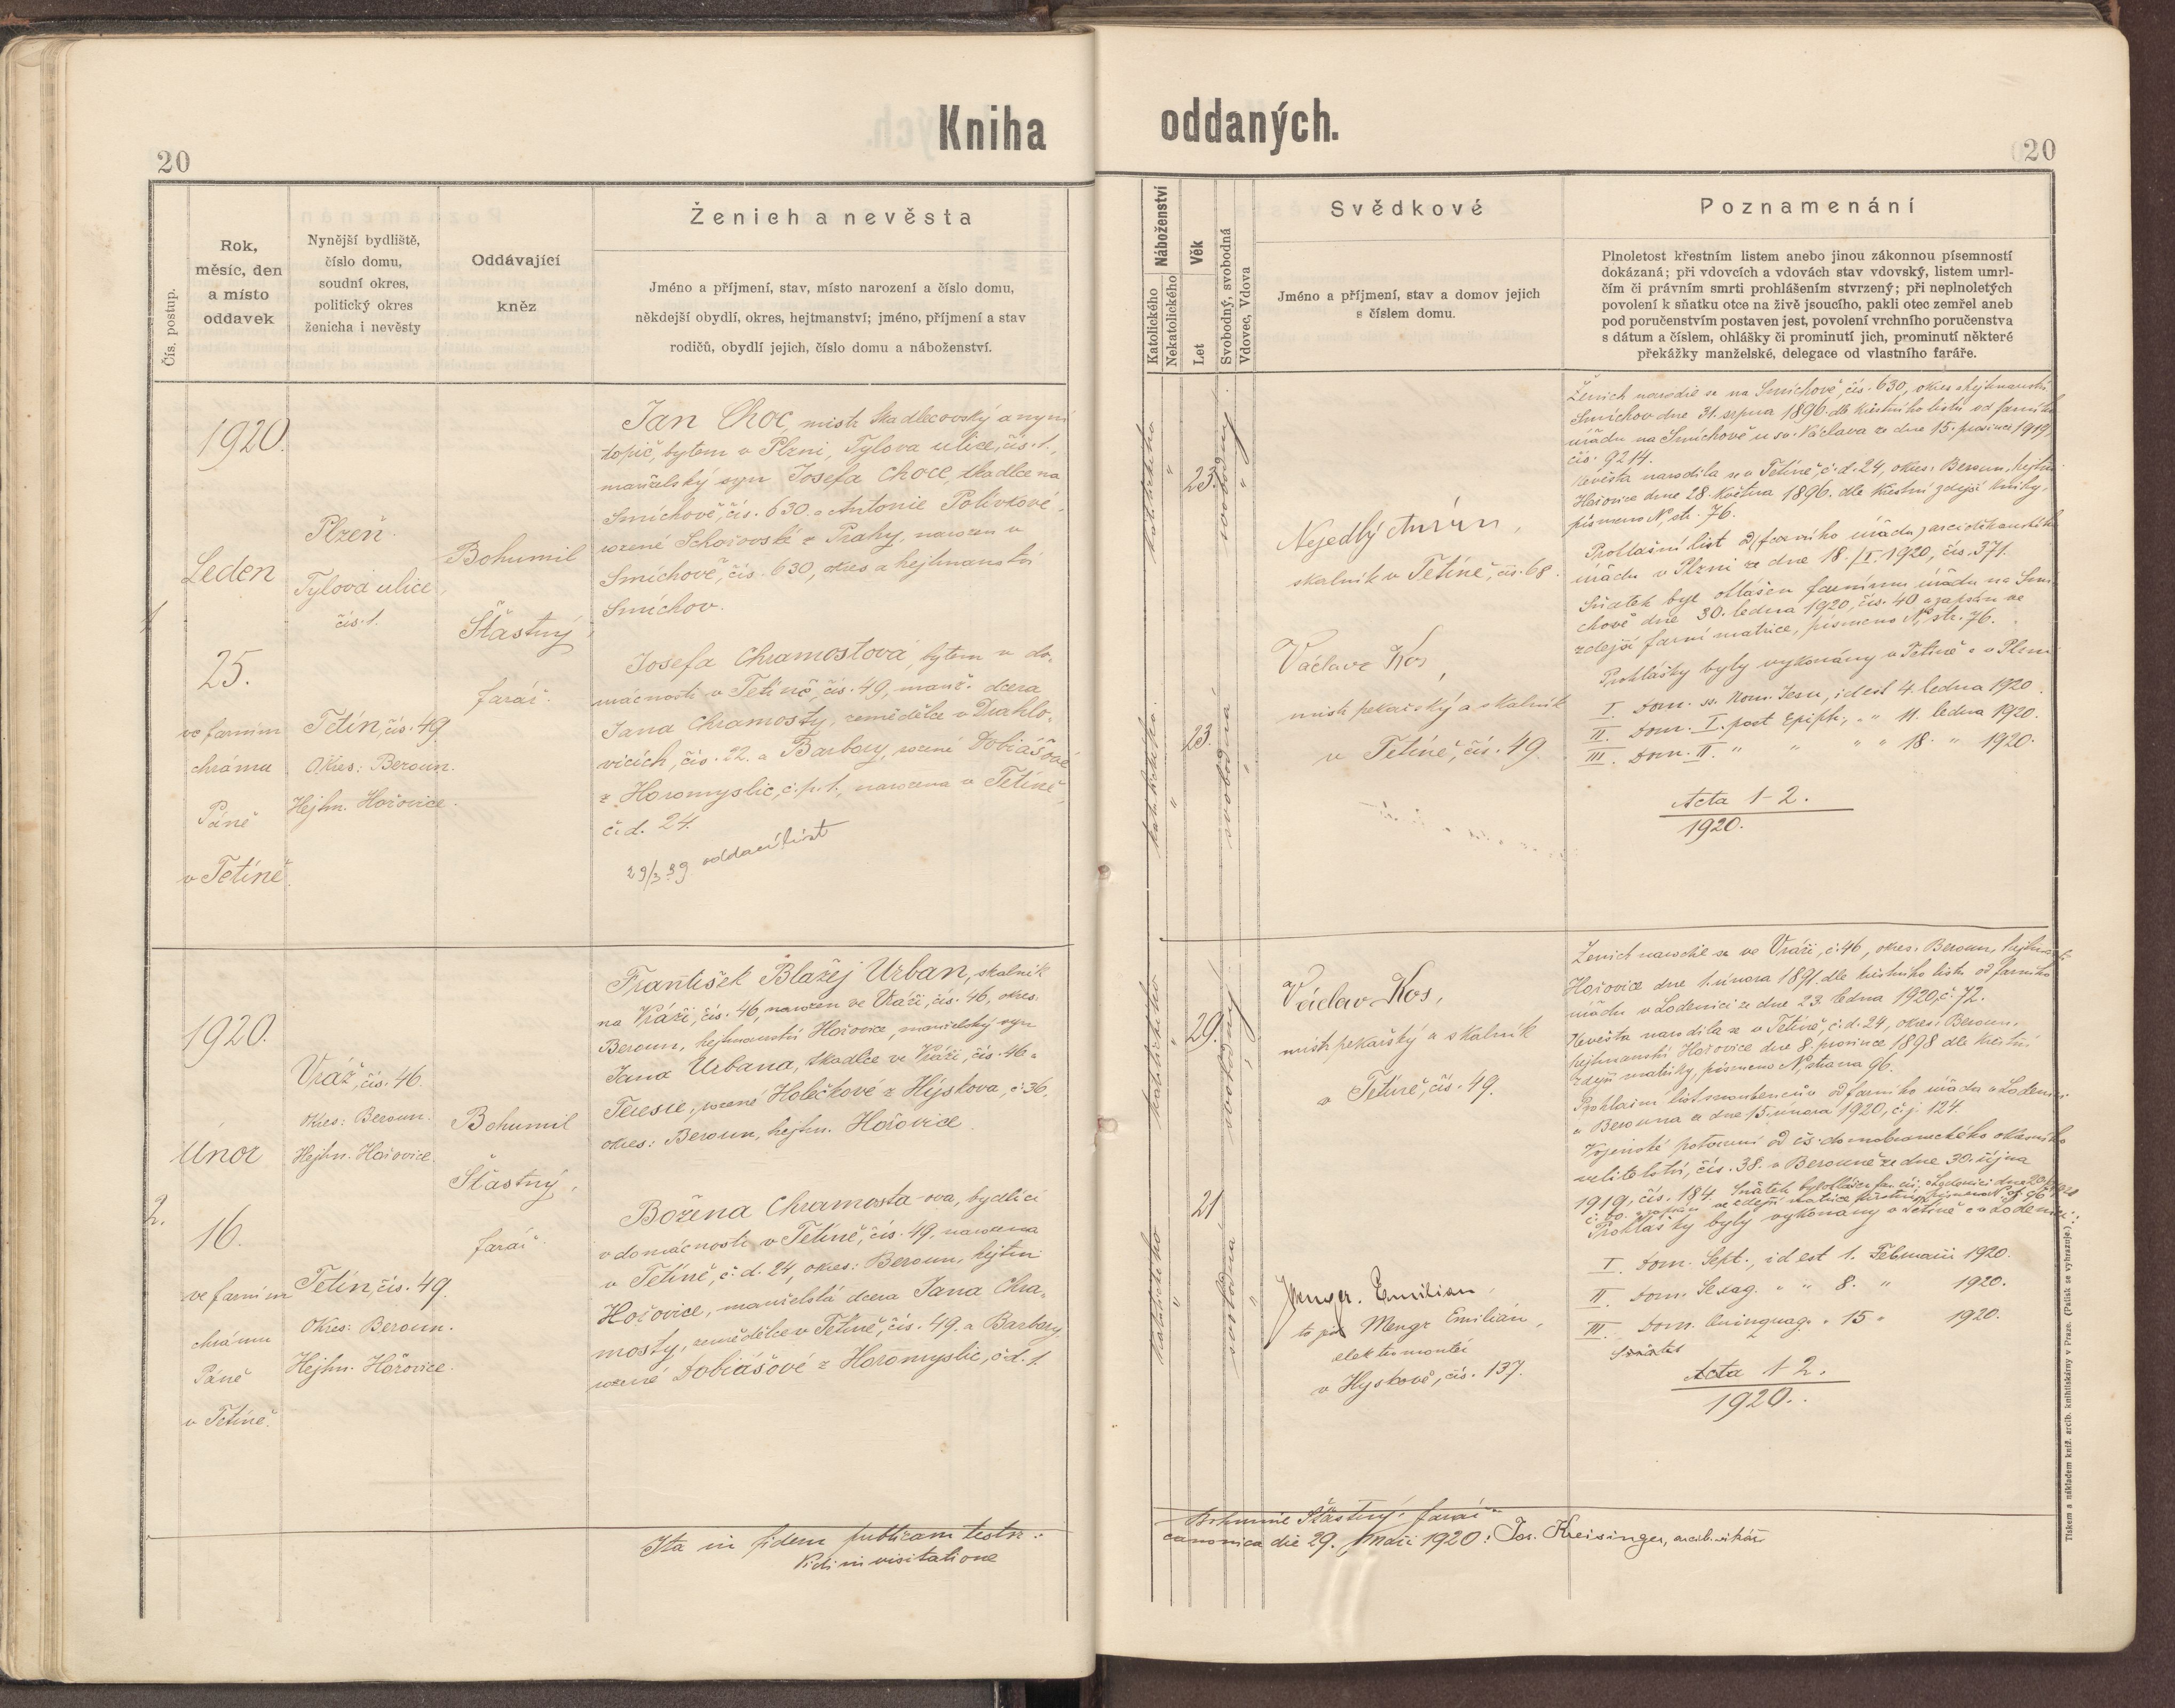 Kniha
oddaných.
20
20
Čís. postup.
Rok,
měsíc, den
a místo
oddavek
Nynější bydliště,
číslo domu,
soudní okres,
politický okres
ženicha i nevěsty
Oddávající
kněz
Ženich a nevěsta
Jméno a příjmení, stav, místo narození a číslo domu,
někdejší obydlí, okres, hejtmanství; jméno, příjmení a stav
rodičů, obydlí jejich, číslo domu a náboženství.
Náboženství
Katolického
Nekatolického
Věk
Let
Svobodný, svobodná
Vdovec, Vdova
Svědkové
Jméno a příjmení, stav a domov jejich
s číslem domu.
Poznamenání
Plnoletost křestním listem anebo jinou zákonnou písemností
dokázaná; při vdovcích a vdovách stav vdovský, listem umrl-
čím či právním smrti prohlášením stvrzený; při neplnoletých
povolení k sňatku otce na živě jsoucího, pakli otec zemřel aneb
pod poručenstvím postaven jest, povolení vrchního poručenstva
s dátum a číslem, ohlášky či prominutí jich, prominutí některé
překážky manželské, delegace od vlastního faráře.
1
1920.
Leden
25.
ve farním
chrámu
Páně
v Tetíně.
Plzeň
Tylova ulice,
čís. 1.
Tetín, čís. 49
Okres: Beroun.
Hejtm. Hořovice.
Bohumil
Šťastný,
farář.
Jan Choc, mistr tkadlcovský a nyní
topič, bytem v Plzni, Tylova ulice, čís. 1.,
manželský syn Josefa Choce, tkadlce na
Smíchově, čís. 630. a Antonie Polívkové,
rozené z Prahy, narozen v
Smíchově, čís. 630, okres a hejtmanství
Smíchov.
Josefa Chramostová, bytem v do-
mácnosti v Tetíně, čís. 49, manž. dcera
Jana Chramosty, zemědělce v Drahlo-
vicích, čís. 22. a Barbory, rozené Dobiášové
z Horomyslic, č. p. 1., narozena v Tetíně,
č. d. 24.
29/3 39 oddací list
katolického
"
23.
svobodný
"
katolického
"
23.
svobodná
"
Nejedlý Antonín,
skalník v Tetíně, čís. 68.
Václav Kos,
mistr pekařský a skalník
v Tetíně, čís. 49.
Ženich narodil se na Smíchově, čís. 630, okres a hejtmanství
Smíchov dne 31. srpna 1896. dle křestního listu od farního
úřadu na Smíchově u sv. Václava ze dne 15. prosince 1919,
čís. 9214.
Nevěsta narodila se v Tetíně, č. d. 24, okres: Beroun, hejtm.
Hořovice dne 28. května 1896. dle křestní zdejší knihy,
písmeno N, str. 76.
Prohlašní list z farního úřadu, arciděkanského
úřadu v Plzni ze dne 18./I. 1920, čís. 371.
Sňatek byl ohlášen farnímu úřadu na Smí-
chově dne 30. ledna 1920, čís. 40 a zapsán ve
zdejší farní matrice, písmeno N, str. 76.
Prohlášky byly vykonány v Tetíně a v Plzni
I. Dom. ss. Nom. Jesu, id est 4. ledna 1920.
II. Dom. I. post Epiph., " " 11. ledna 1920.
III. Dom. II. " " " " 18. " 1920.
Acta 1-2.
1920.
2.
1920.
Únor
16.
ve farním
chrámu
Páně
v Tetíně.
Vráž, čís. 46.
Okres: Beroun.
Hejtm. Hořovice.
Tetín, čís. 49.
Okres: Beroun.
Hejtm. Hořovice.
Bohumil
Šťastný,
farář.
František Blažej Urban, skalník
na Vráži, čís. 46, narozen ve Vráži, čís. 46, okres:
Beroun, hejtmanství Hořovice, manželský syn
Jana Urbana, tkadlce ve Vráži, čís. 46 a
Teresie, rozené Holečkové z Hýskova, č. 36,
okres: Beroun, hejtm. Hořovice.
Božena Chramosta-ova, bydlící
v domácnosti v Tetíně, čís. 49, narozena
v Tetíně, č. d. 24, okres: Beroun, hejtm.
Hořovice, manželská dcera Jana Chra-
mosty, zemědělce v Tetíně, čís. 49. a Barbory,
rozené Dobiášové z Horomyslic, č. d. 1.
katolického
"
29.
svobodný
"
katolického
"
21
svobodná
"
Václav Kos,
mistr pekařský a skalník
v Tetíně, čís. 49.
Emilian,
to jest Mengr Emilián,
elektromontér
v Hyskově, čís. 137.
Ženich narodil se ve Vráži, č. 46, okres: Beroun, hejtmanství
Hořovice dne 1. února 1891. dle křestního listu od farního
úřadu v Lodenici ze dne 23. ledna 1920, č. 72.
Nevěsta narodila se v Tetíně, č. d. 24, okres: Beroun,
hejtmanství Hořovice dne 8. prosince 1898 dle křestní
zdejší matriky, písmeno N, strana 96.
Prohlašní list snoubenců od farního úřadu v Lodenici
u Berouna ze dne 15. února 1920, č. j. 124.
Vojenské potvrzení od čs. domobraneckého okresního
velitelství, čís. 38. v Berouně ze dne 30. října
1919, čís. 184. Sňatek byl ohlášen far. úř. v Lodenici dne
zapsán ve zdejší matrice křestní, písmeno N, str. 96
Prohlášky byly vykonány v Tetíně a v Lodenici:
I. Dom. Sept., id est 1. Februarii 1920.
II. Dom. Sexag. " " 8. " 1920.
III. Dom. Quinquag. " 15 " 1920.
Acta 1-2.
1920.
Ita in fidem publicam testor: Bohumil Šťastný, farář
Vidi in visitatione canonica die 29. Maii 1920: Jos. Kreisinger, arcib. vikář
Tiskem a nákladem kníž. arcib. knihtiskárny v Praze. (Patisk se vyhrazuje.)